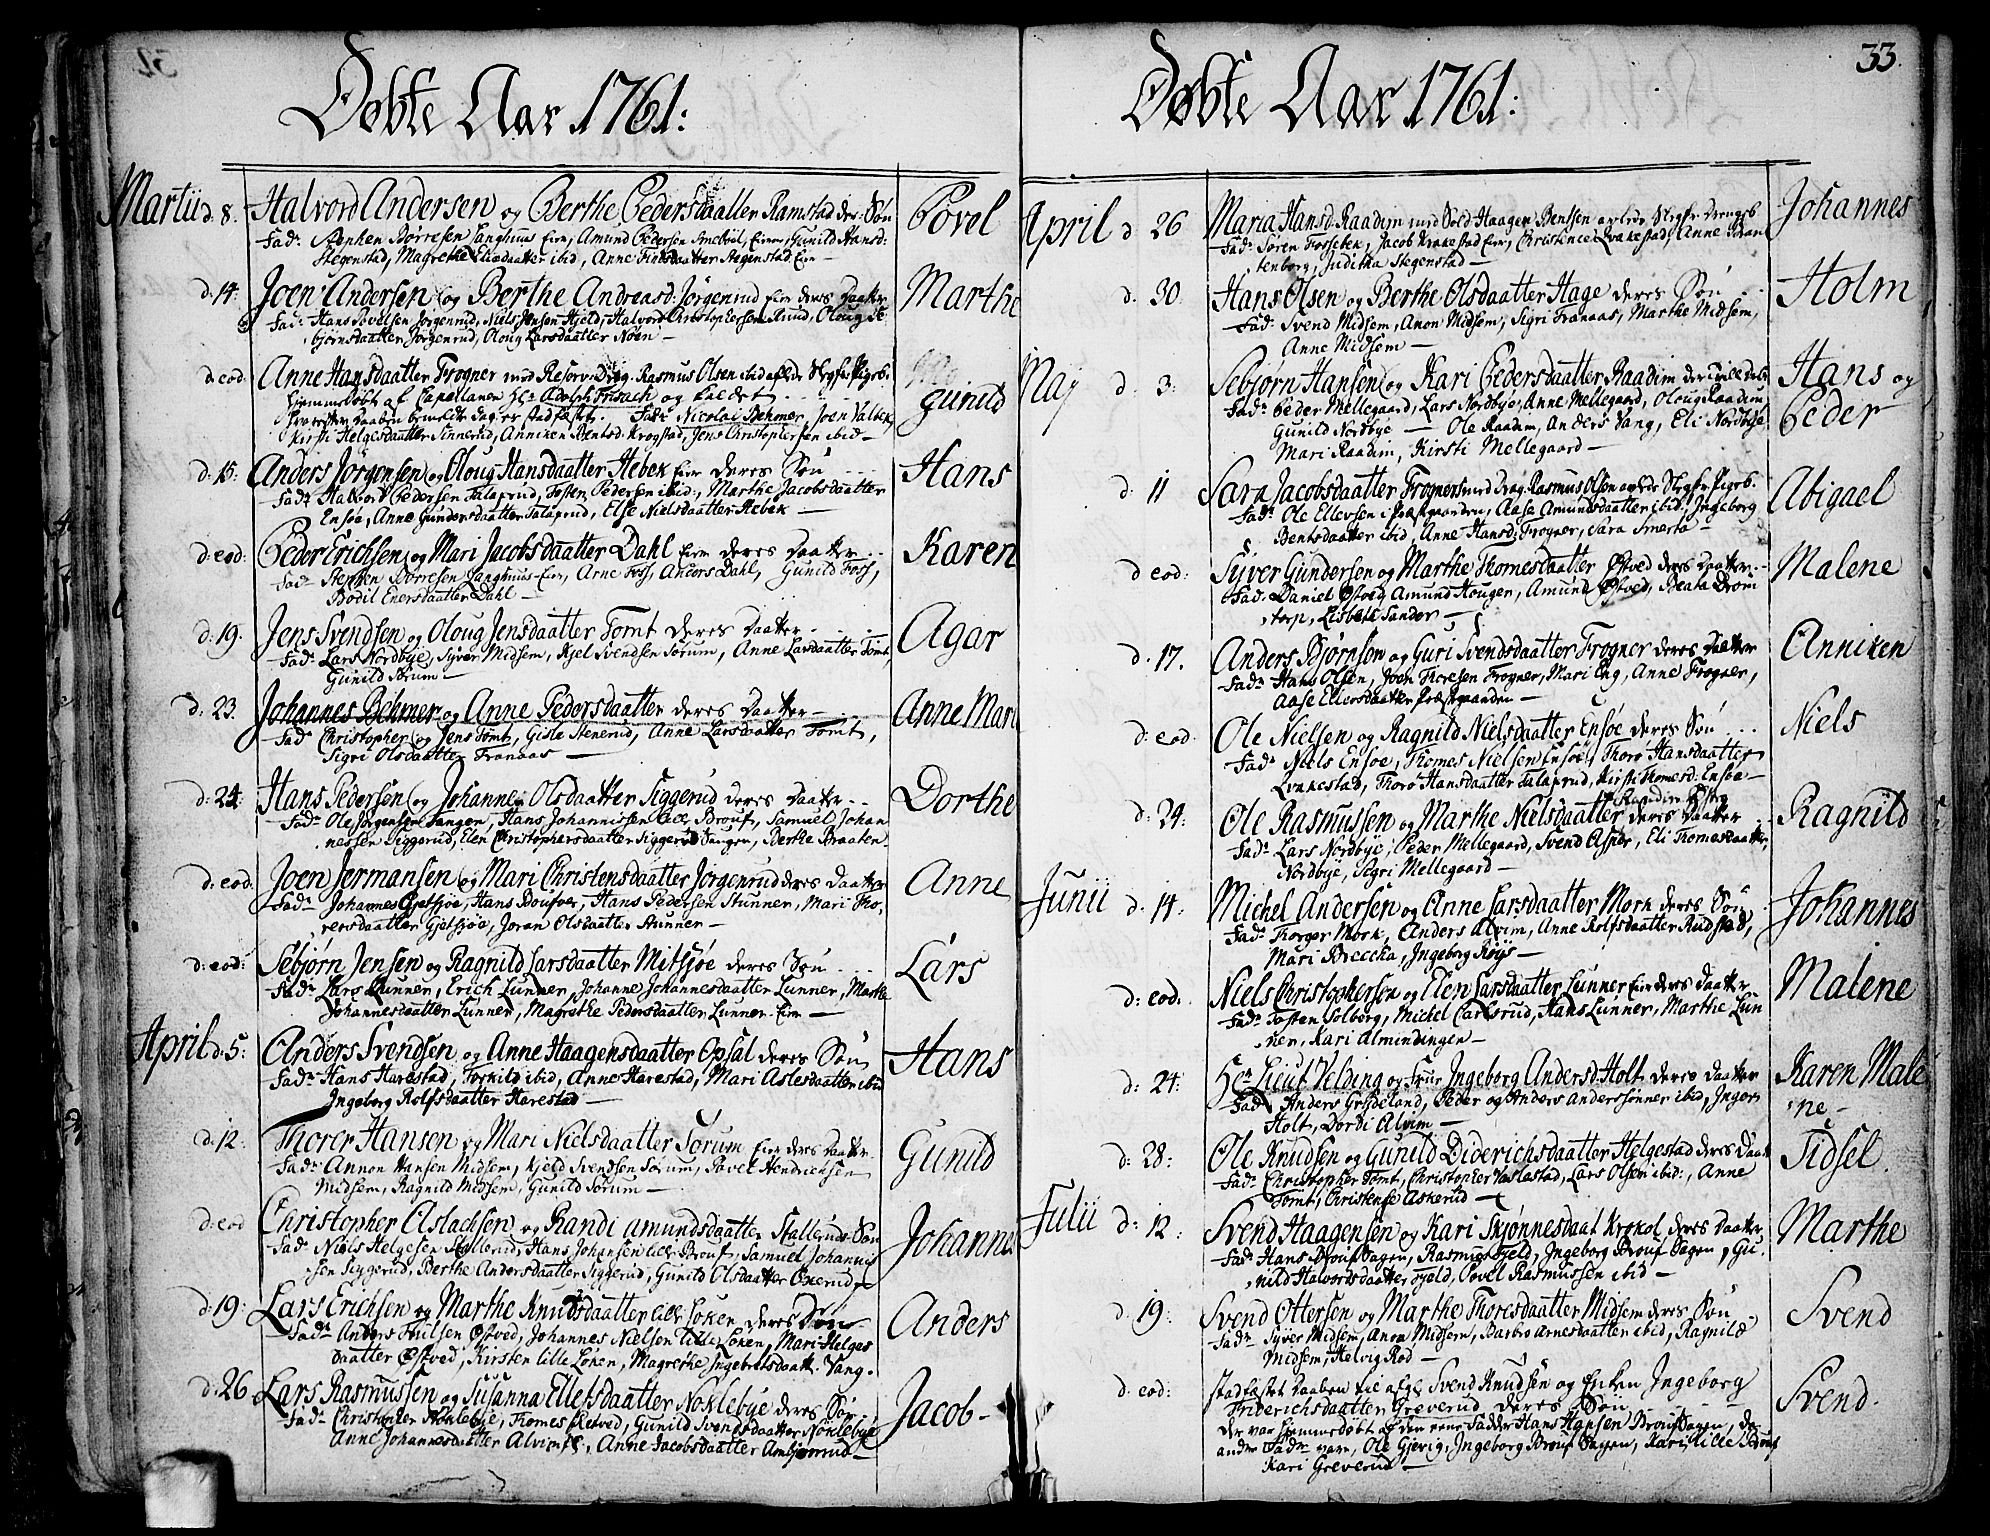 Døbte Aar 1761:
Martii d. 8. Halvord Andersen og Berthe Pedersdaatter Ramstad des: Søn Povel
Fad: Stephen Børresen Langhuus Eier, Amund Pedersen Smebøl, Eier, Gunild Hansd:
Stegenstad, Magrethe Eliædaatter ibid, Anne Findsdaatter Stegenstad Eier —
d. 14. Joen Andersen og Berthe Andreasd. Jørgenrud Eier deres Daatter Marthe
Fad: Hans Povelsen Jørgenrud, Niels Jensen Hjeld, Halvord Christophersen Ruud, Oloug Se-
bjørnsdaatter Jørgenrud, Oloug Larsdaatter Noen —
d: eod. Anne Hansdaatter Frogner med Reserv: Drag: Rasmus Olsen ibid aflede Slegfr: Pigeb:
hjemmedøbt af Capellanen Hr Adolph Frisach og kaldet Gunild
hvorefter Daaben bemeldte dag er stadfæstet. Fad: Nicolai Behmer, Joen Valbek,
Kirsti Helgesdaatter Sinnerud, Anniken Bentsd. Krogstad, Jens Christophersen ibid —
d: 15: Anders Jørgensen og Oloug Hansdaatter Hebek Eier deres Søn Hans
Fad: Halvord Pedersen Talaprud, Tosten Pedersen ibid:, Marthe Jacobsdaatter
Ensøe, Anne Gundersdaatter Talaprud, Else Nielsdaatter Hebek —
d: eod: Peder Erichsen og Mari Jacobsdaatter Dahl Eier deres Daatter Karen
Fad: Stephen Børresen Langhuus Eier, Arne Foss, Anders Dahl, Gunild Foss,
Bodil Enersdaatter Dahl —
d: 19. Jens Svendsen og Oloug Jensdaatter Tomt deres Daatter Agar
Fad: Lars Nordbye, Syver Midsem, Kjel Svendsen Sørum, Anne Larsdaatter Tomt,
Gunild Sørum —
d: 23. Johannes Behmer og Anne Pedersdaatter deres Daatter Anne Mari
Fad: Christopher og Jens Tomt, Gisle Stenerud, Anne Larsdaatter Tomt,
Sigri Olsdaatter Franaas —
d: 24. Hans Pedersen og Johanne Olsdaatter Siggerud deres Daatter Dorthe
Fad: Ole Jørgensen Tangen, Hans Johannissen lille Brouf, Samuel Johan
nessen Siggerud, Elen Christophersdaatter Siggerud Tangen, Berthe Braaten
d: eod. Joen Jermansen og Mari Christensdaatter Jørgenrud deres Daatter Anne
Fad: Johannes Gjetsjøe, Hans Boufver, Hans Pedersen Stunner, Mari Tho,
resdaatter Gjetsjøe, Joran Olsdaatter Stunner —
d: eod: Sebjørn Jensen og Ragnild Larsdaatter Mitsjøe deres Søn Lars
Fad: Lars Lunner, Erich Lunner, Johanne Johannesdaatter Lunner, Marthe
Johannesdaatter Lunner, Magrethe Pedersdaatter Lunner Eier —
April d. 5: Anders Svendsen og Anne Haagensdaatter Opsal deres Søn Hans
Fad: Hans Harestad, Torkild ibid, Anne Harestad, Mari Aslesdaatter ibid
Ingeborg Rolfsdaatter Harestad —
d: 12. Thorer Hansen og Mari Nielsdaatter Sørum Eier deres Daatter Gunild
Fad: Annon Hansen Midsem, Kjeld Svendsen Sørum, Povel Hendrichsen
Midsem, Ragnild Midsem, Gunild Sørum —
d: eod Christopher Aslachsen og Randi Amundsdaatter Stallerud: Søn Johannes
Fad: Niels Helgesen Stallerud, Hans Johansen lille Brouf, Samuel Johannis
sen Siggerud, Berthe Andersdaatter Siggerud, Gunild Olsdaatter Oxerud —
d: 19: Lars Erichsen og Marthe Knudsdaatter lille Løken deres Søn Anders
Fad: Anders Truilsen Østved, Johannes Nielsen lille Løken, Mari Helges
daatter Østved, Kirsten lille Løken, Magrethe Ingebretsdaatt: Vang.
d: 26 Lars Rasmussen og Susanna Ellefsdaatter Noklebye deres Søn Jacob —
Fad: Christopher Noklebye, Thomes Østved, Gunild Svendsdaatter Noklebye
Anne Johannesdaatter Alvim, Anne Jacobsdaatter Ambjørnrud —
33.
Døbte Aar 1761:
April d 26 Maria Hansd. Raadim med Sold. Haagen Bentsen avlede Slegfr. Drengeb Johannes
Fad: Søren Fosseteg, Jacob Krakestad Eier, Christence Qvakestad, Anne Bran
tenborg, Juditha Stegenstad —
d: 30. Hans Olsen og Berthe Olsdaatter Hage deres Søn Holm
Fad: Svend Midsem, Anon Midsem, Sigri Franaas, Marthe Midsem,
Anne Midsem —
Maj d: 3: Sebjørn Hansen og Kari Pedersdaatter Raadim deres tvill. Døbt Hans og
Fad: Peder Mellegaard, Lars Nordbye, Anne Mellegaard, Oloug Raadim, Peder
Gunild Nordbye — Ole Raadim, Anders Vang, Eli Nordbye
Mari Raadim, Kirsti Mellegaard —
d: 11 Sara Jacobsdaatter Frogner med Drag. Rasmus Olsen avlede Slegfr: Pigeb. Abigael
Fad: Ole Ellevsen i Præstgaarden, Aase Amundsdaatter ibid, Ingeborg
Bentsdaatter ibid, Anne Hansd: Frogner, Sara Smerta —
d eod: Syver Gundersen og Marthe Thomesdaatter Østved deres Daatter Malene
Fad. Daniel Østved, Amund Hougen, Amund Østved, Beata Drom
torp, Lisbeth Sander —
d. 17. Anders Bjørnsøn og Guri Svendsdaatter Frogner deres Daatter Anniken
Fad: Hans Olsen, Joen Thoresen Frogner, Mari Eng, Anne Frogner,
Aase Eliersdaatter Præstgaarden —
d: eod. Ole Nielsen og Ragnild Nielsdaatter Ensøe deres Søn Niels
Fad: Niels Ensøe, Thomes Nielsen Ensøe, Thoro Hansdaatter
Qvakestad, Thoro Hansdaatter Talaprud, Kirsti Thomesd: Ensøe —
d: 24: Ole Rasmussen og Marthe Nielsdaatter deres Daatter Ragnild
Fad: Lars Nordbye, Peder Mellegaard, Svend Asper, Eli Thomasdaatter
Nordbye, Sigri Mellegaard —
Junii d. 14: Michel Andersen og Anne Larsdaatter Mørk deres Søn Johannes
Fad: Thorger Mørk, Anders Alvim, Anne Rolfsdaatter Rudstad,
Mari Breecka, Ingeborg Røiis —
d: eod. Niels Christophersen og Elen Larsdaatter Lunner Eier deres Daatter Malene
Fad: Tosten Solberg, Michel Carlsrud, Hans Lunner, Marthe Lun
ner, Kari Almindingen —
d: 24: Hr Lieut: Velding og Frue Ingeborg Andersd. Holt deres Daatter Karen Male
Fad: Anders Grydeland, Peder og Anders Anderssønner ibid, Ingeb: ne —
Holt, Dordi Alvim —
d: 28: Ole Knudsen og Gunild Diderichsdaatter Helgestad deres Daat Sidsel.
Fad: Christopher Tomt, Christopher Haslestad, Lars Olsen ibid:, Anne
Tomt, Christense Askerud —
Julii d: 12. Svend Haagensen og Kari Skjønnesdaat Krokol deres Daatter Marthe
Fad: Hans Brouf Sagen, Rasmus Fjeld, Ingeborg Brouf Sagen, Gu.
nild Halvordsdaatter Fjeld, Povel Rasmussen ibid —
d: 19: Svend Ottersen og Marthe Thoresdaatter Midsem deres Søn Svend
Fad: Syver Midsem, Anon Midsem, Barbro Arnesdaatter ibid, Ragnild
Midsem, Helvig Rød —
d: eod: Stadfæstet Daaben til afgl. Svend Knudsen og Enken Ingeborg Svend.
Friderichsdaatter Greverud deres Søn
der var hjemmedøbt af den eene Fadder Hans Hansen Brouf Sagen, de
andre Fad: vare, Ole Gjevig, Ingeborg Brouf Sagen, Kari lille Brouf
Kari Greverud —